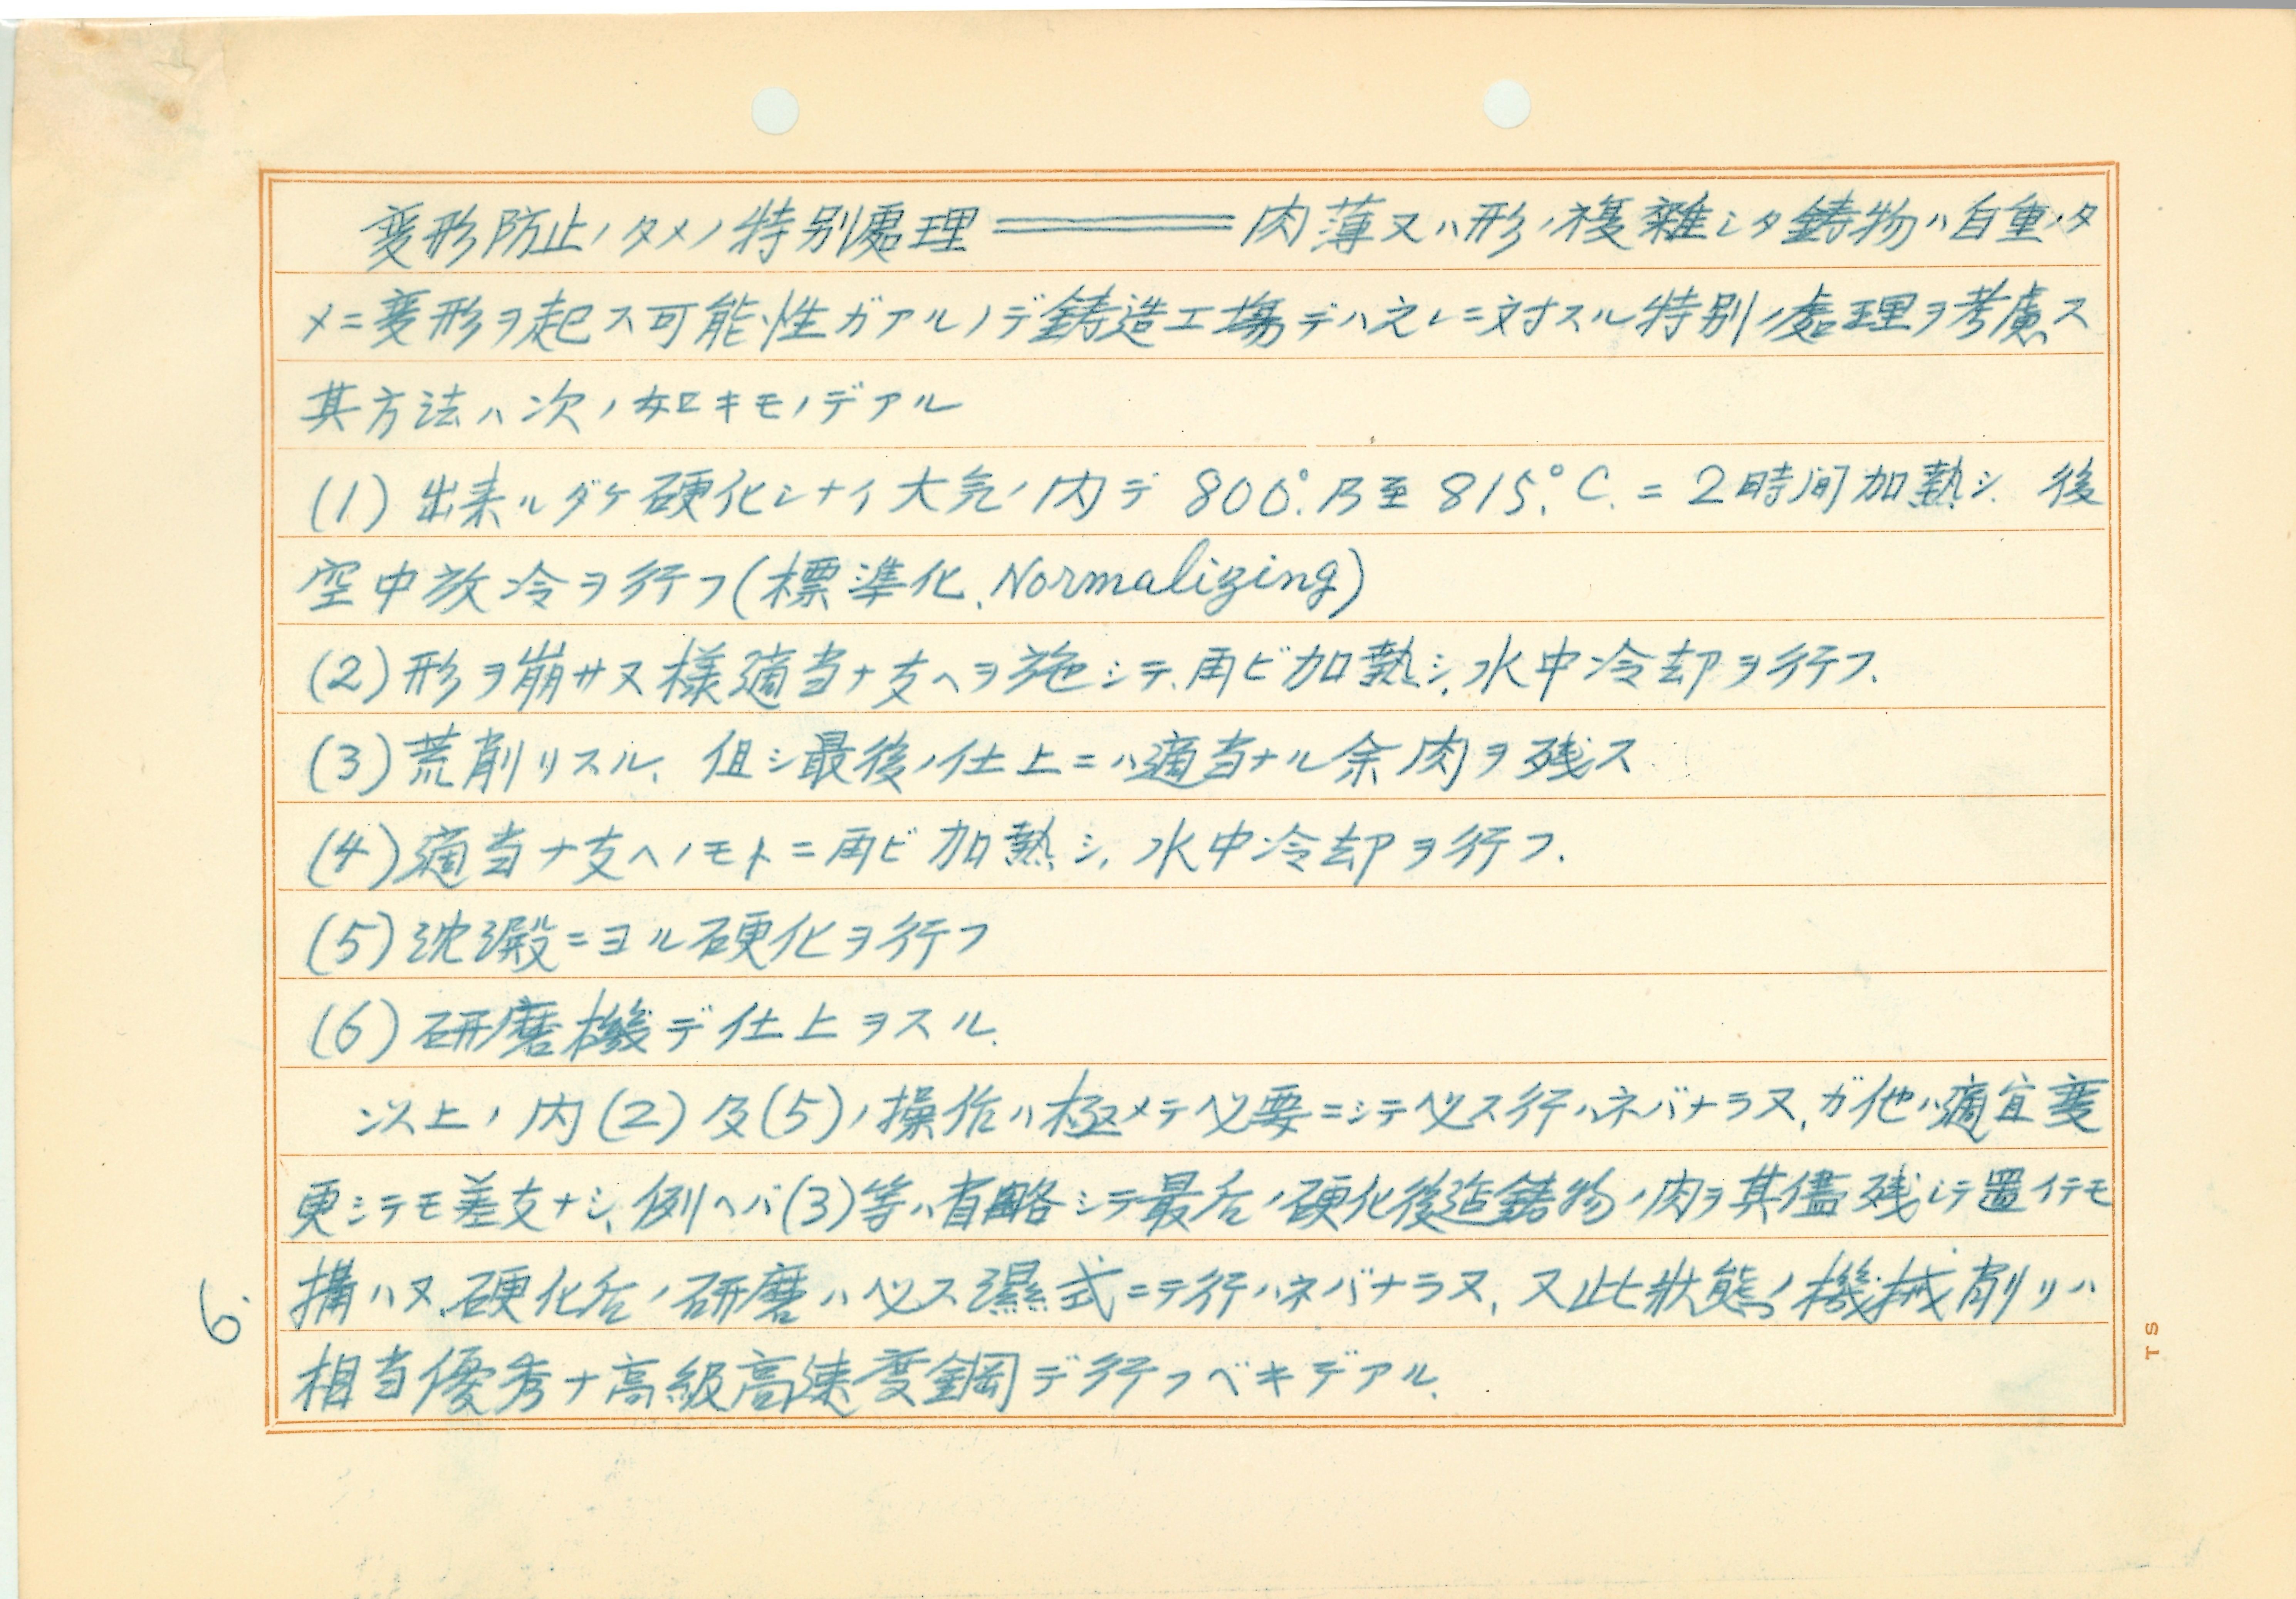 変形防止ノタメノ特別處理＝＝＝肉薄又ハ形ノ複雜シタ鋳物ハ自重ノタ
メニ変形ヲ起ス可能性ガアルノデ鋳造工場デハ之レニ対スル特別ノ處理ヲ考慮ス
其方法ハ次ノ如キモノデアル
(1) 出来ルダケ硬化シナイ大気ノ内デ 800°.乃至 815°C.ニ 2時間加熱シ. 後
空中放冷ヲ行フ(標準化.Normalizing)
(2) 形ヲ崩サヌ様適当ナ支ヘヲ施シテ.再ビ加熱シ.水中冷却ヲ行フ.
(3) 荒削リスル. 但シ最後ノ仕上ニハ適当ナル余肉ヲ残ス
(4) 適当ナ支ヘノモトニ再ビ加熱シ. 水中冷却ヲ行フ.
(5) 沈澱ニヨル硬化ヲ行フ
(6) 研磨機デ仕上ヲスル.
以上ノ内(2)及(5)ノ操作ハ極メテ必要ニシテ必ス行ハネバナラヌ.ガ他ハ適宜変
更シテモ差支ナシ.例ヘバ(3)等ハ省略シテ最后ノ硬化後迄鋳物ノ肉ヲ其儘残シテ置イテモ
構ハヌ.硬化后ノ研磨ハ必ス濕式ニテ行ハネバナラヌ. 又此狀態ノ機械削リハ
相当優秀ナ高級高速度鋼デ行フベキデアル.
6.
TS